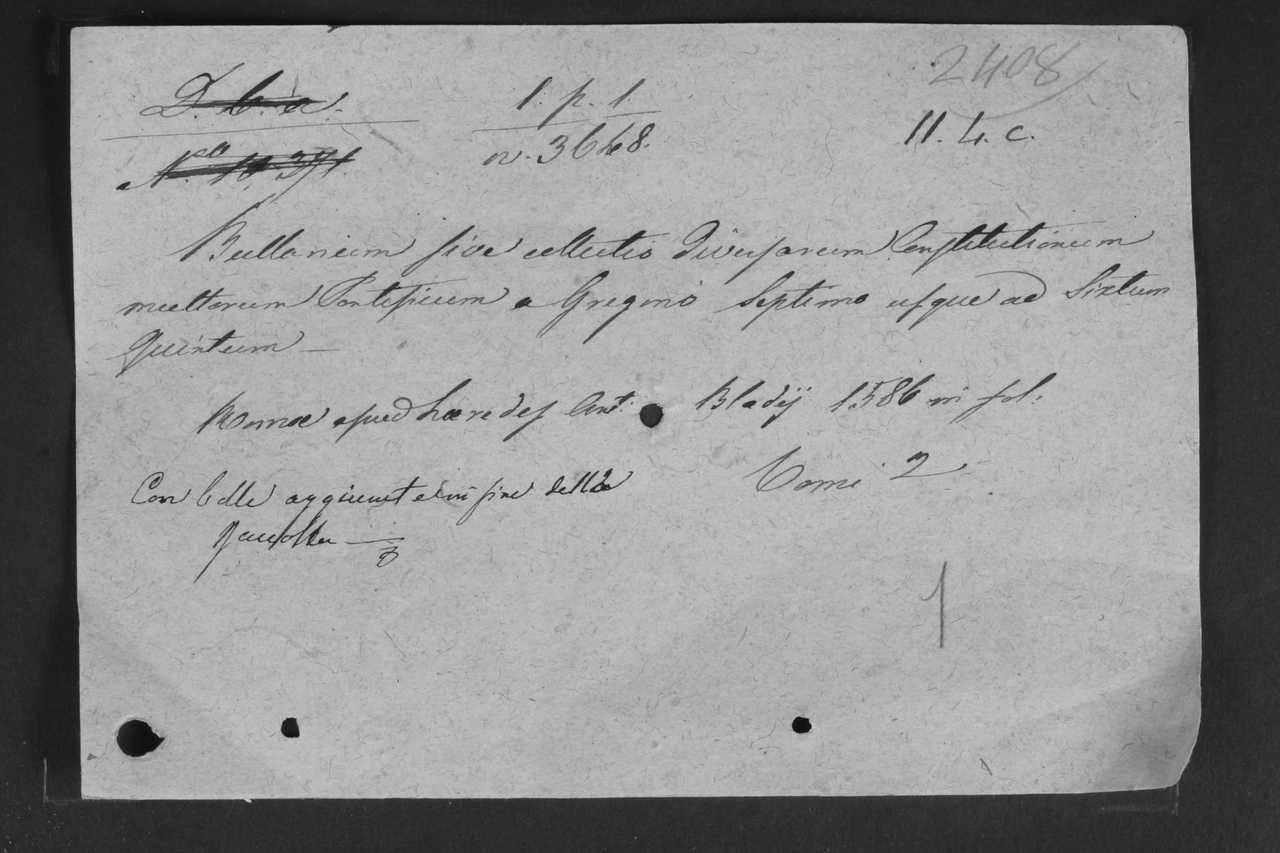 2408
D. b. a.
1. p. 1.
11. 4. c.
N.ro 10,371
n. 3648.
Bullarium sive collectio diversarum Constitutionum
multorum Pontificum a Gregorio Septimo usque ad Sixtum
Quintum —
Romae apud haeredes Ant. Bladij 1586 in fol.
Tomi 2
Con bolle aggiunte in fine della
Raccolta —
1